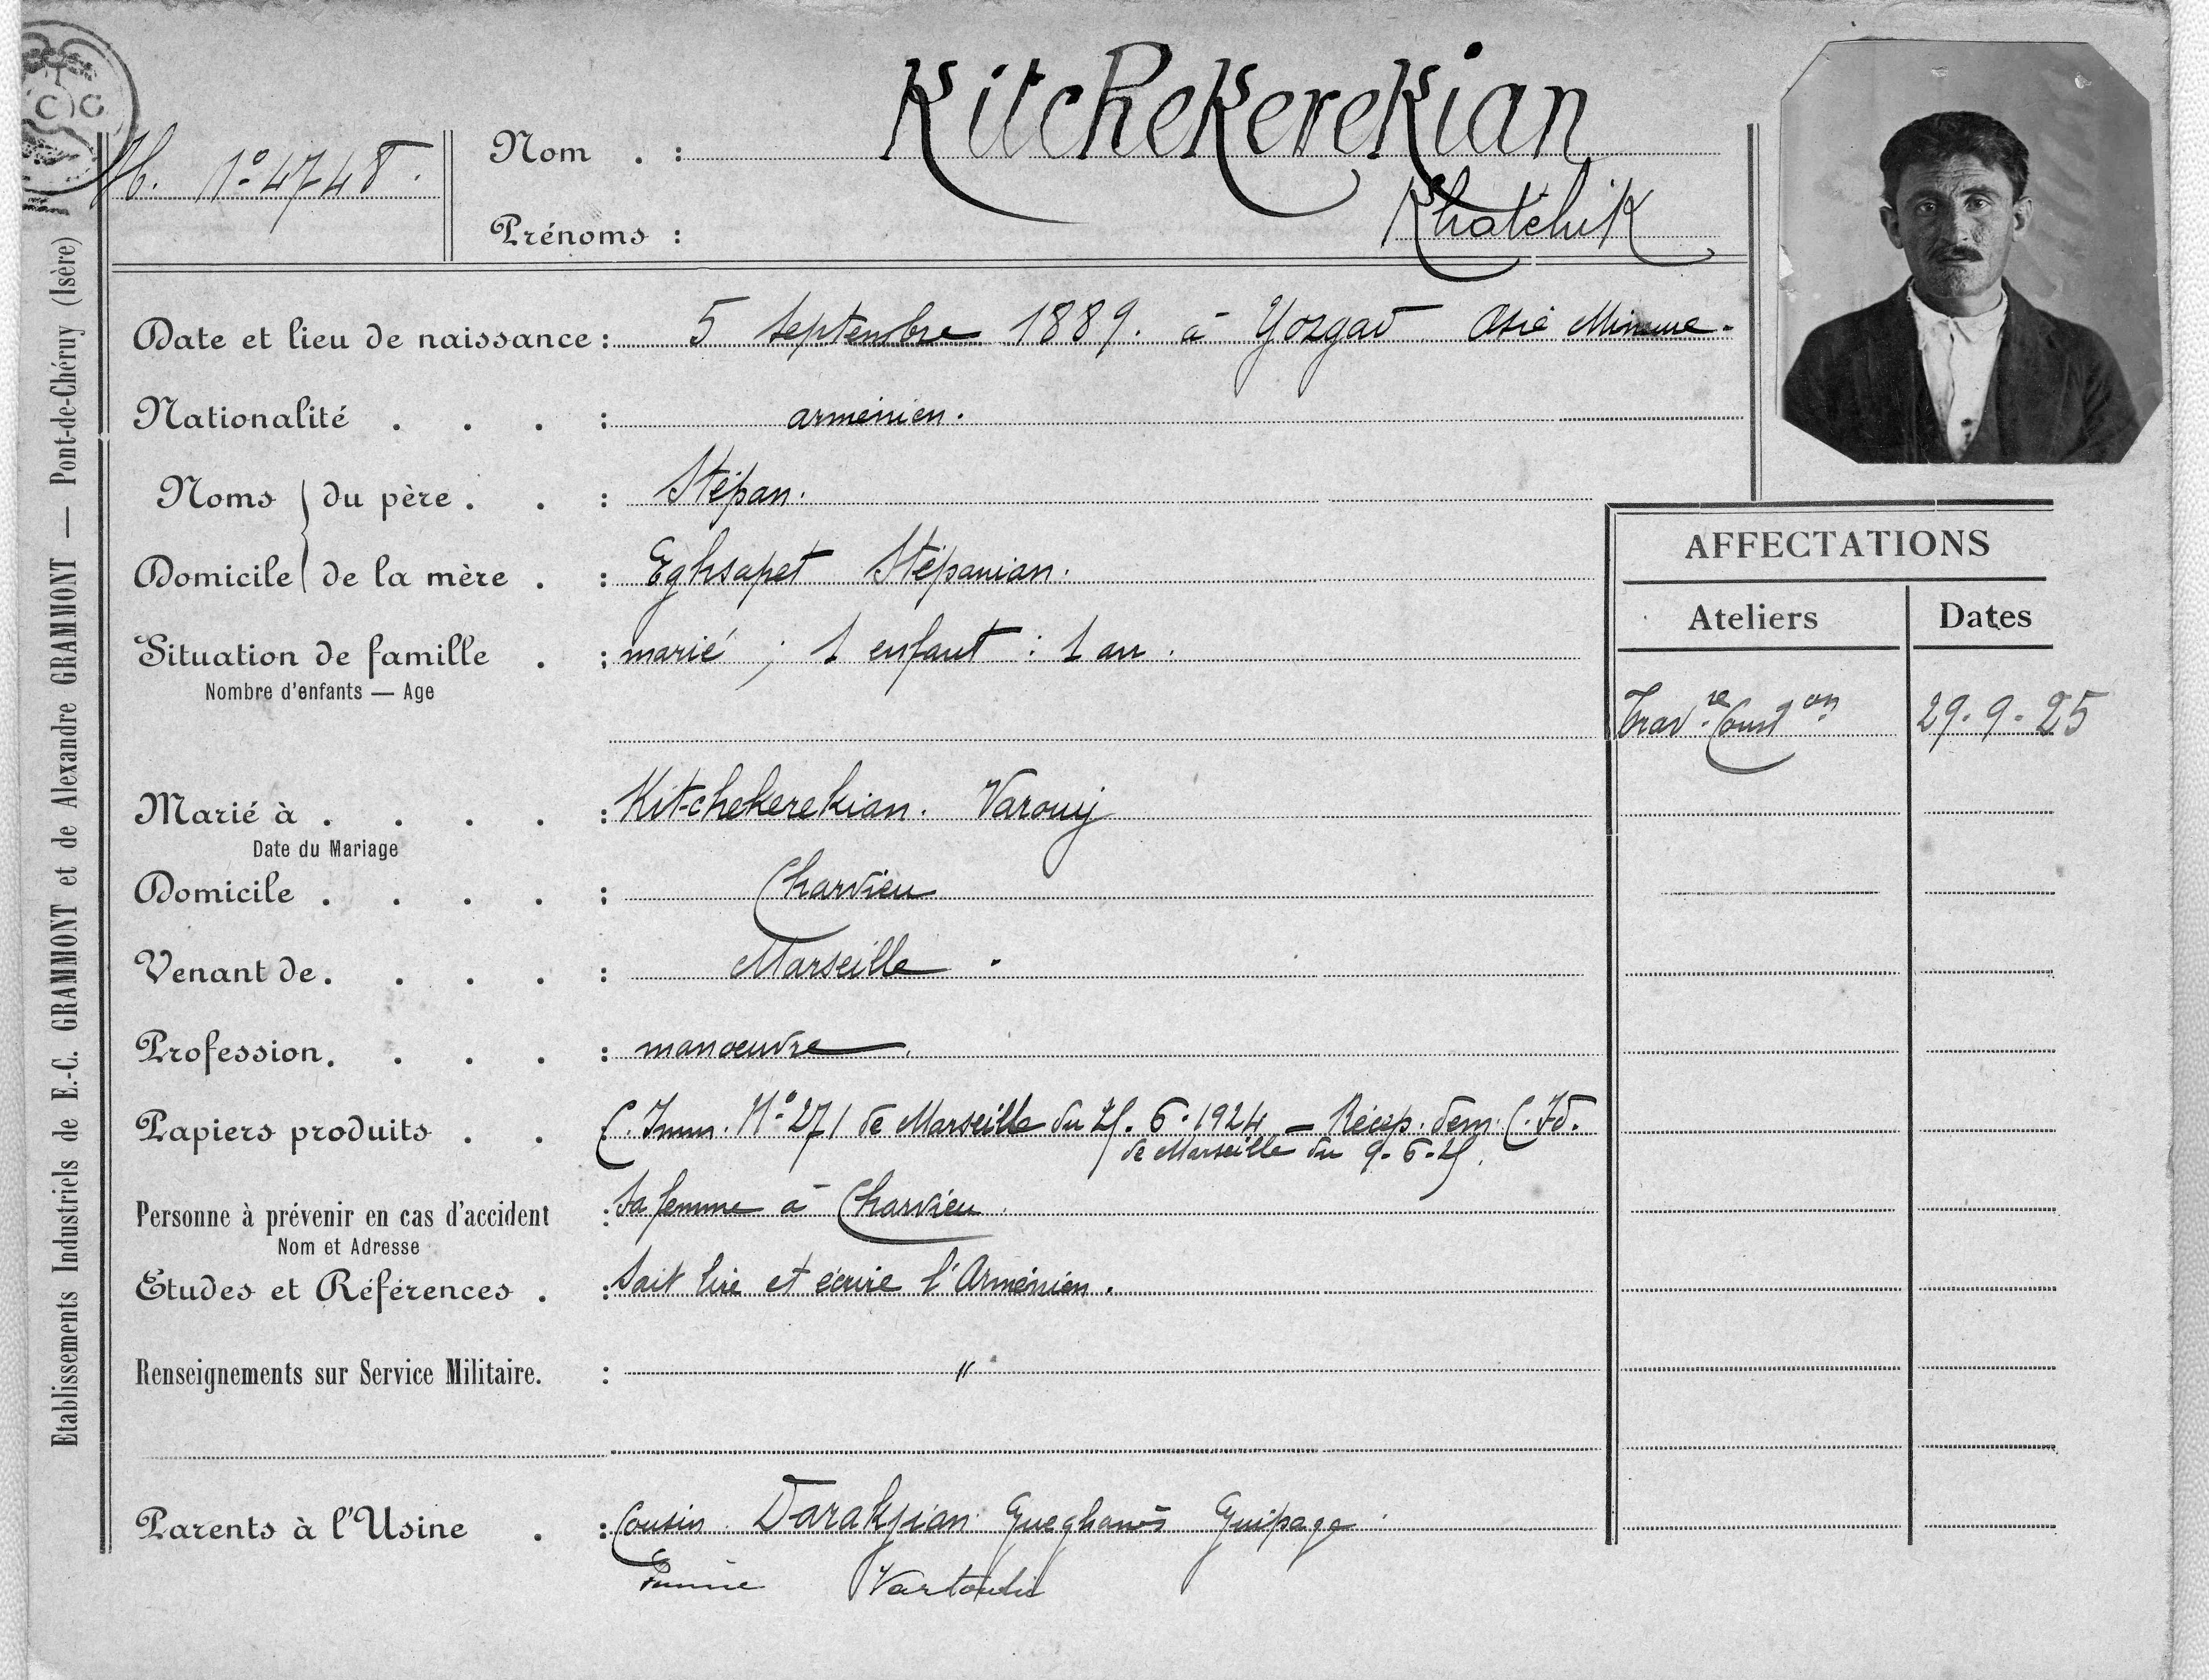 C G
N° 4748.
Nom . : Kitchekerekian
Prénoms : Khatchik
Date et lieu de naissance : 5 septembre 1889. à Yozgad Asie Mineure.
Nationalité . . . : arménien.
Noms du père . . : Stépan.
Domicile de la mère . : Eghsapet Stépanian.
Situation de famille . : marié ; 1 enfant : 1 an.
Nombre d'enfants — Age
Marié à . . . . : Kitchekerekian. Varouj
Date du Mariage
Domicile . . . . : Charvieu
Venant de . . . . : Marseille.
Profession . . . . : manoeuvre.
Papiers produits . . : C. Imm. N° 271 de Marseille du 25.6.1924 — Récep. dem. C. Id.
de Marseille du 9.6.25.
Personne à prévenir en cas d'accident : Sa femme à Charvieu.
Nom et Adresse
Etudes et Références . : Sait lire et écrire l'Arménien.
Renseignements sur Service Militaire. : "
Parents à l'Usine . : Cousin Darakjian Gueghanès Guipage
Vartouhi
AFFECTATIONS
Ateliers Dates
Trav. re Const on 29.9.25
Etablissements Industriels de E.-C. GRAMMONT et de Alexandre GRAMMONT — Pont-de-Chéruy (Isère)